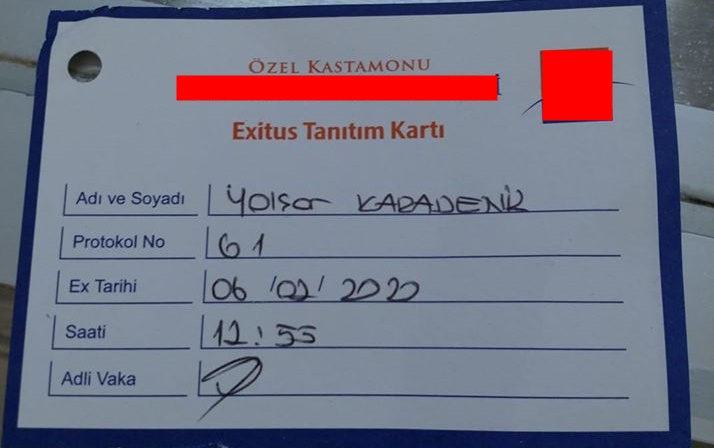 ÖZEL KASTAMONU
Exitus Tanıtım Kartı
Adı ve Soyadı Yolşor KARADENİZ
Protokol No 61
Ex Tarihi 06/02/2020
Saati 12:55
Adli Vaka